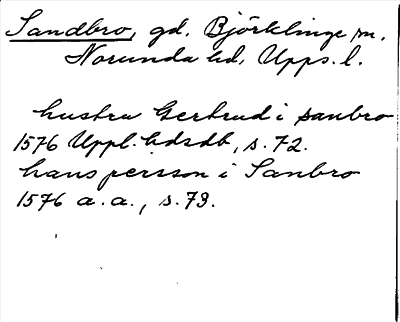 Sandbro, gd. Björklinge sn.
Norunda hd, Upps. l.
hustru Gertrud i sanbro
1576 Uppl. hdsdb, s. 72.
hans persson i Sanbro
1576 a. a., s. 73.